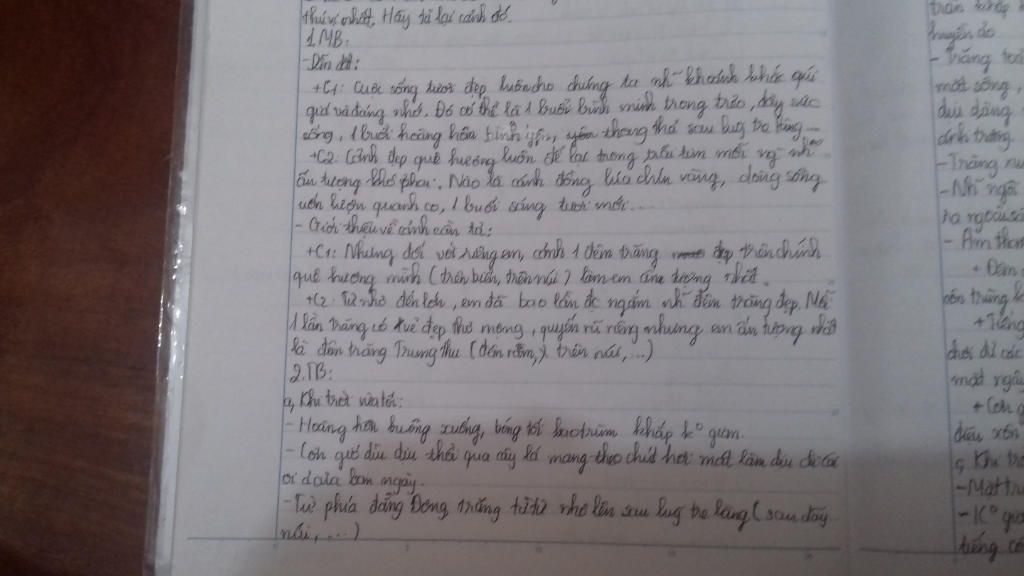 thú vị nhất. Hãy tả lại cảnh đó.
1.MB:
-Dẫn dắt:
+C1: Cuộc sống tươi đẹp luôn cho chúng ta nh~ khoảnh khắc quý
giá và đáng nhớ. Đó có thể là 1 buổi bình minh trong trẻo, đầy sức
sống, 1 buổi hoàng hôn bình yên, yên thong thả sau luỹ tre làng...
+C2: Cảnh đẹp quê hương luôn để lại trong trái tim mỗi ng nh~
ấn tượng khó phai. Nào là cánh đồng lúa chín vàng, dòng sông
uốn lượn quanh co, 1 buổi sáng tươi mới...
- Giới thiệu về cảnh cần tả:
+C1: Nhưng đối với riêng em, cảnh 1 đêm trăng đẹp trên chính
quê hương mình (trên biển, trên núi) làm em ấn tượng nhất.
+C2: Từ nhỏ đến lớn, em đã bao lần đc ngắm nh~ đêm trăng đẹp. Mỗi
1 lần trăng có vẻ đẹp thơ mộng, quyến rũ riêng nhưng em ấn tượng nhất
là đêm trăng Trung thu (đêm rằm, trên núi,...)
2.TB:
a, Khi trời vừa tối:
- Hoàng hôn buông xuống, bóng tối bao trùm khắp k° gian.
- Cơn gió dìu dịu thổi qua cây lá mang theo chút hơi mát làm dịu đi cái
oi ả của ban ngày.
-Từ phía đằng Đông, trăng từ từ nhô lên sau luỹ tre làng (sau dãy
núi,...)
trăn khắp
huyền ảo
- Trăng
mặt sông,
dịu dàng
ánh trăng
-Trăng
-Nh~ ngôi
ra ngoài
- Âm thanh
+ Dàn
côn trùng
+Tiếng
chơi
mặt
+ Cơn
điệu
c, Khi
-Mặt
- K° gian
tiếng